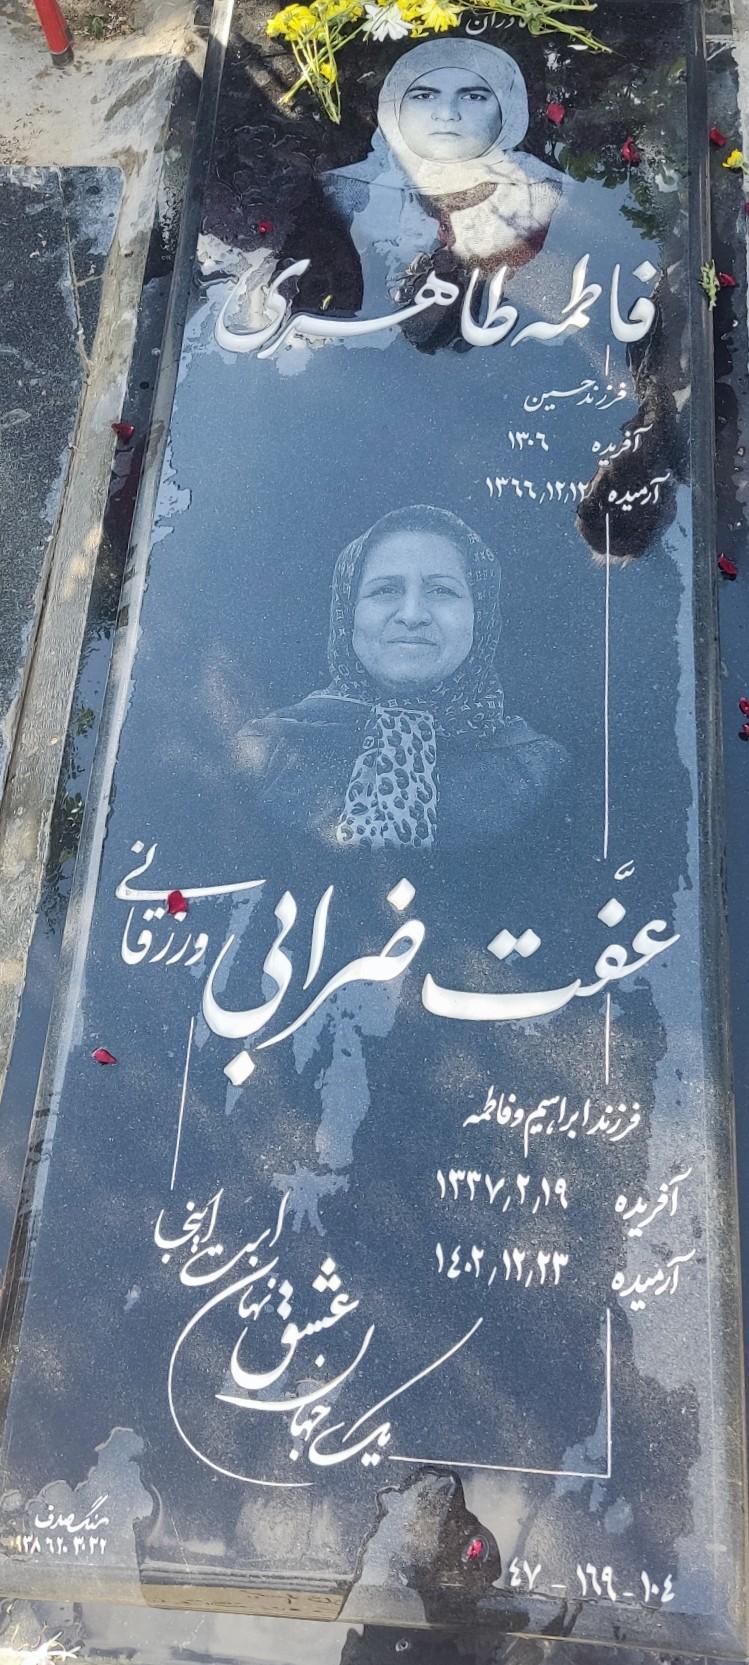 مادران
فاطمه طاهری
فرزند حسین
آفریده ۱۳۰۶
آرمیده ۱۳۶۶٫۱۲٫۱۲
عفّت ضرابی ورزقانی
فرزند ابراهیم و فاطمه
آفریده ۱۳۳۷٫۲٫۱۹
آرمیده ۱۴۰۲٫۱۲٫۲۳
یک جهان عشق نهان است اینجا
سنگ صدف
۱۰۴ - ۱۶۹ - ۴۷